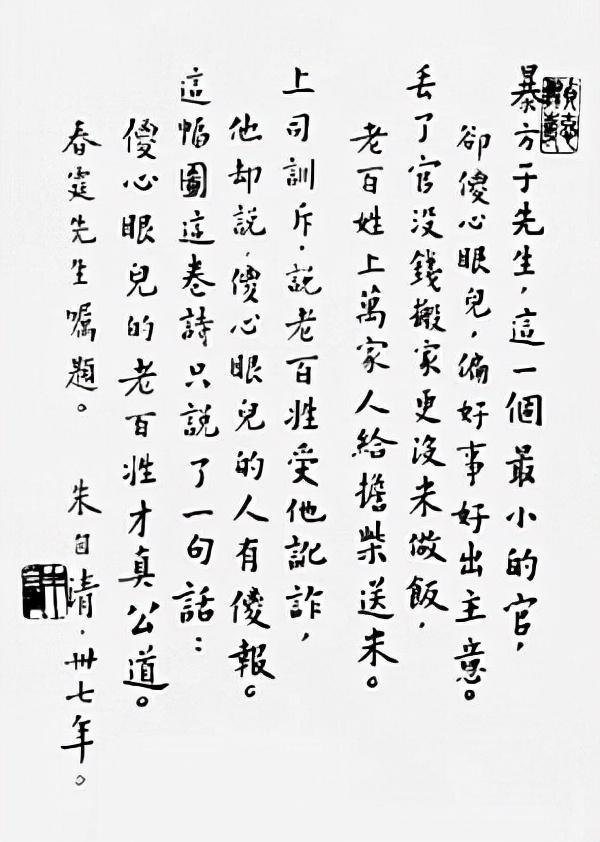 暴方子先生,這一個最小的官,
卻傻心眼兒,偏好事好出主意。
丢了官没錢搬家更没米做飯,
老百姓上萬家人給擔柴送米。
上司訓斥,説老百姓受他訛詐,
他却説,傻心眼兒的人有傻報。
這幅圖這卷詩只説了一句話:
傻心眼兒的老百姓才真公道。
春霆先生嘱題。 朱自清.卅七年。